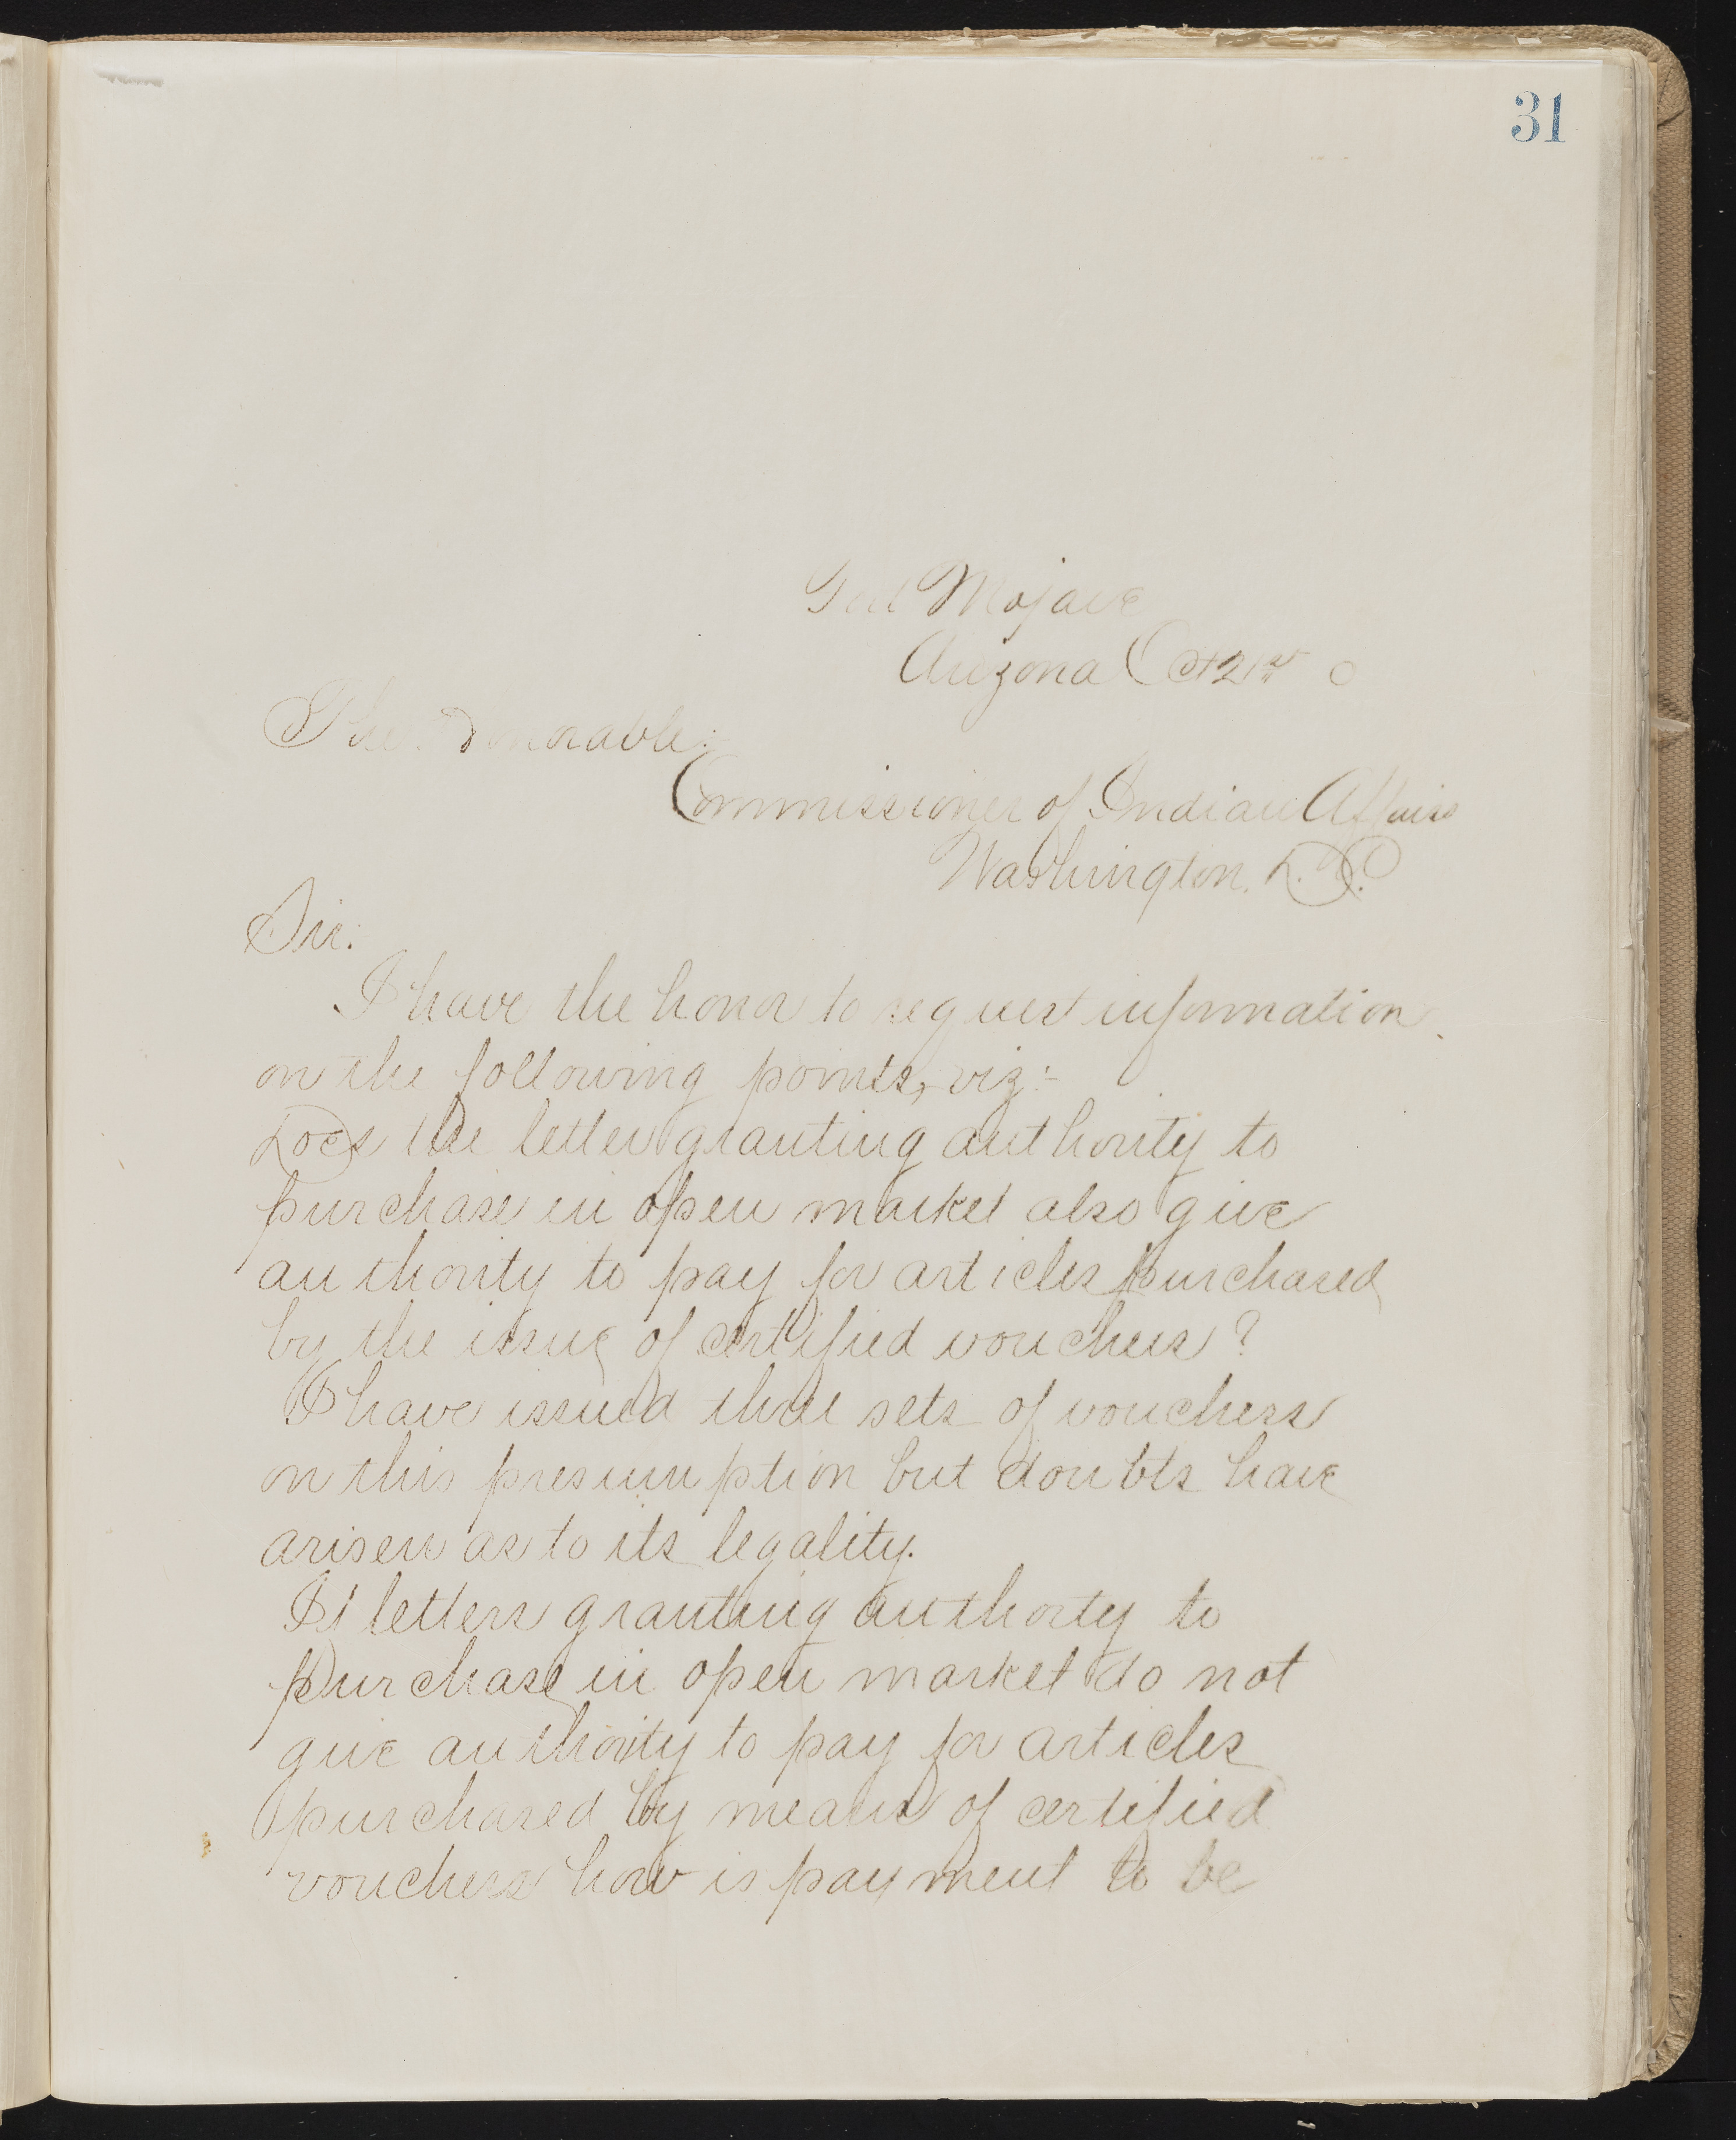 31
Fort Mojave
Arizona Oct 21st
The Honorable:
Commissioner of Indian Affairs
Washington. D.C.
Sir:
I have the honor to request information
on the following points, viz:-
Does the letter granting authority to
purchase in open market also give
authority to pay for articles purchased
by the issue of certified vouchers?
I have issued three sets of vouchers
on this presumption but doubts have
arisen as to its legality.
If letters granting authorty to
purchase in open market do not
give authority to pay for articles
purchased by means of certified
vouchers how is payment to be